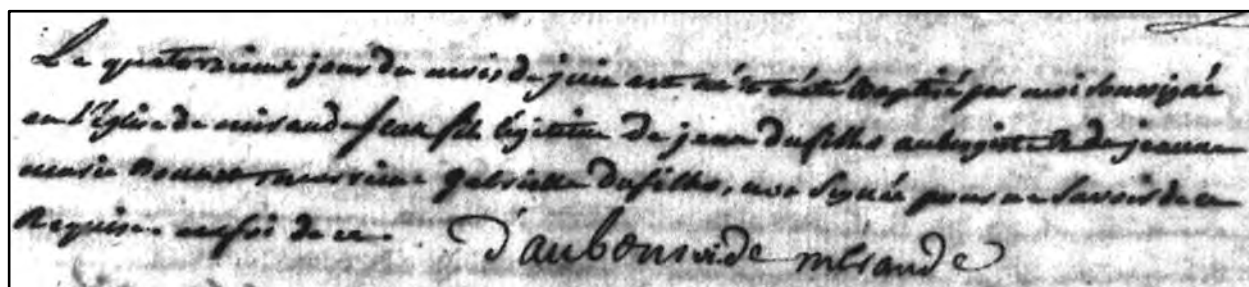 Le quatorzieme jour du mois de juin est né et a été baptisé par moi soussigné
en l'Eglise de mirande jean fils légitime de jean dufilho aubergiste & de jeanne
marie Bonnet marrine gabrielle dufilho, non signée pour ne savoir de ce
Requise en foi de ce.
d'aubons vic de mirande